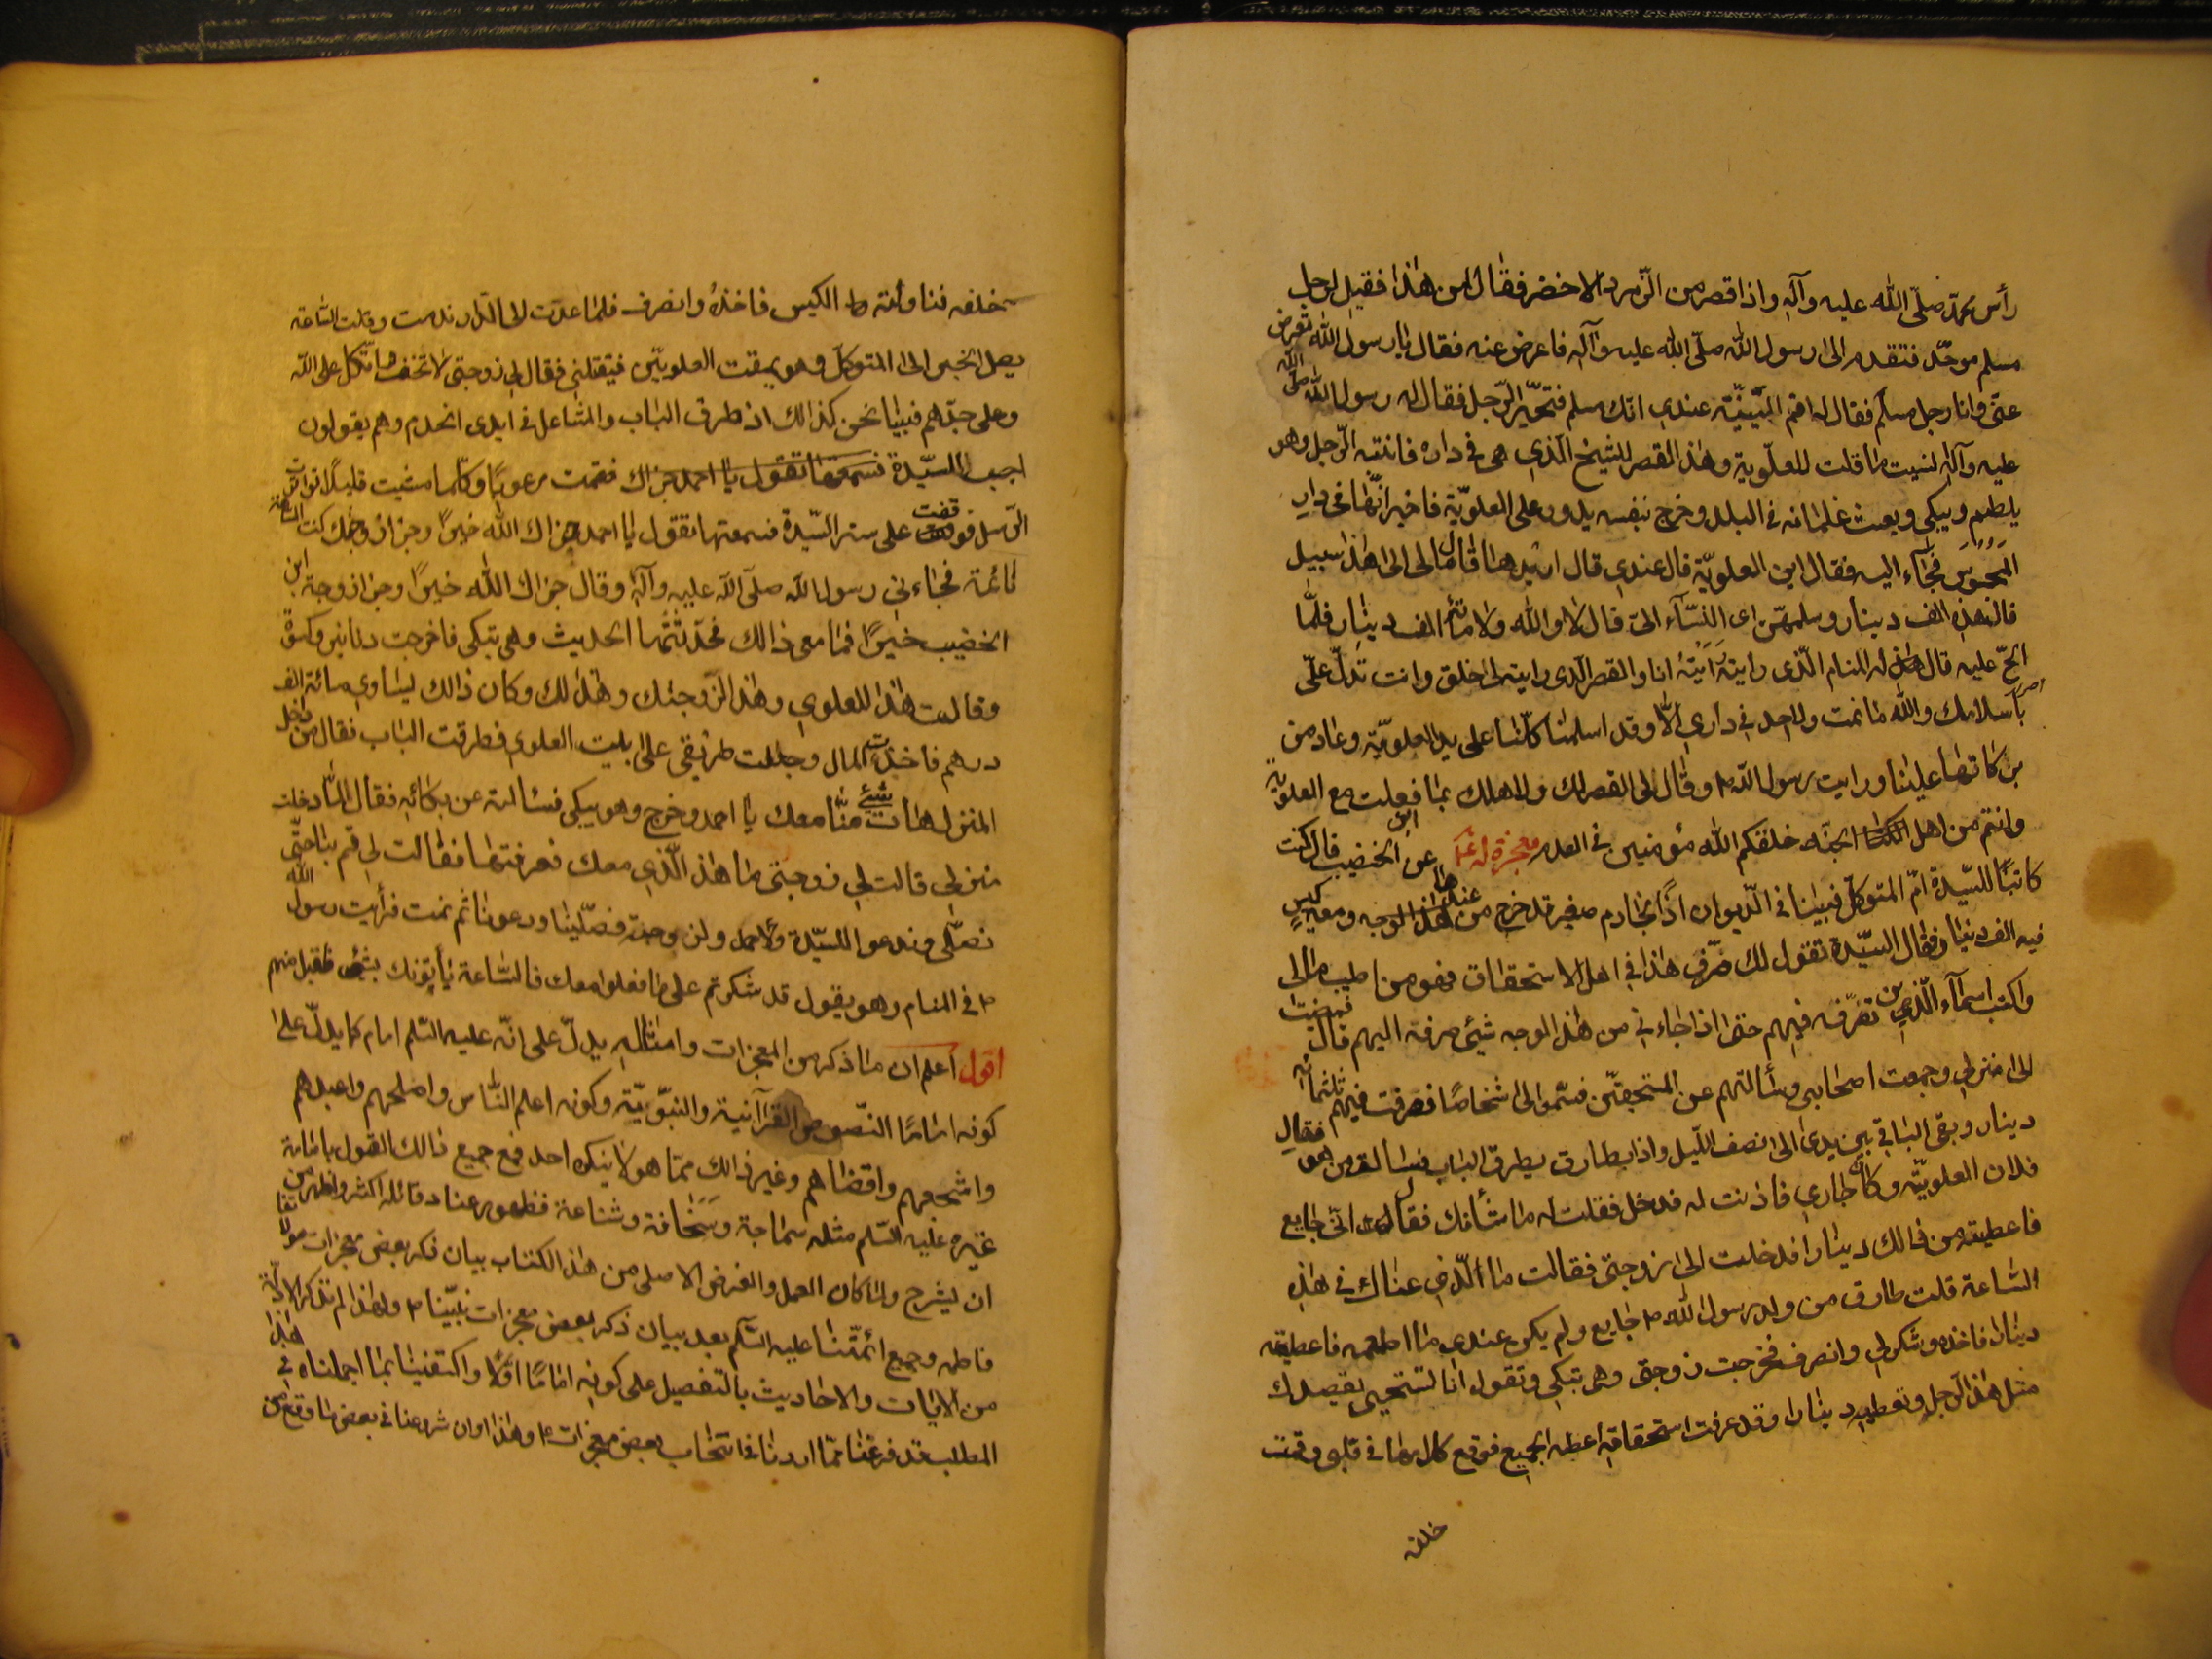 رأس محمّد صلّى الله عليه وآله واذا قصر من الزّمرد الاخضر فقال لمن هذا فقيل لرجل
مسلم موحّد فتقدم الى رسول الله صلّى الله عليه وآله فاعرض عنه فقال يا رسول الله تعرض
عنّى وانا رجل مسلم فقال له اقم البيّنة عندى انك مسلم فتحيّر الرّجل فقال له رسول الله صلّى الله
عليه وآله نسيت ما قلت للعلويّة وهذا القصر للشيخ الّذى هى فى داره فانتبه الرّجل وهو
يلطم ويبكى وبعث غلمانه فى البلد وخرج بنفسه يدور على العلويّة فاخبر انّها فى دار
المجوس فجاء اليه فقال اين العلويّة قال عندى قال اريدها قال ما لى الى هذا سبيل
قال هذه الف دينار وسلمهنّ الىّ قال لا والله ولا مائة الف دينار فلمّا
الحّ عليه قال له المنام الّذى رايته انا والقصر الّذى رايته لى خلق وانت تدلّ علىّ
باسلامك والله ما نمت ولا احد فى دارى الّا وقد اسلمنا كلّنا على يد العلويّة وعاد من
بركاتها علينا ورايت رسول الله ص وقال لى القصر لك ولاهلك بما فعلت مع العلويّة
وانتم من اهل الجنّة خلقكم الله مؤمنين فى العدم معجزة له عن ابن الخضيب قال كنت
كاتبًا للسّيدة امّ المتوكّل فبينا فى الدّيوان اذا بخادم صغير قد خرج من عندها ومعه كيس
فيه الف دينار فقال السيّدة تقول لك فرّق هذا فى اهل الاستحقاق فهو من اطيب مالى
واكتب اسماء الّذين تفرّقه فيهم حتى اذا جاءنى من هذا الوجه شيئ صرفته اليهم قال فمضيت
الى منزلى وجمعت اصحابى وسألتهم عن المستحقّين فسّموا لى اشخاصًا ففرقت فيهم ثلثمائة
دينار وبقى الباقى بين يدى الى نصف اللّيل واذا بطارق يطرق الباب فسألته من هو فقال
فلان العلويّ وكان جارى فاذنت له فدخل فقلت له ما شأنك فقال انّى جايع
فاعطيته من ذلك دينارا فدخلت الى زوجتى فقالت ما الّذى عناك فى هذه
السّاعة قلت طارق من ولد رسول الله ص جايع ولم يكن عندى ما اطعمه فاعطيته
دينارا فاخذه وشكر لى وانصرف فخرجت زوجتى وهى تبكى وتقول اما تستحيى يقصدك
مثل هذا الرّجل وتعطيه دينارا وقد عرفت استحقاقه اعطه الجميع فوقع كلامها فى قلبى وقمت
خلفه
خلفه فناولته الكيس فاخذه وانصرف فلمّا عدت الى الدّار ندمت وقلت السّاعة
يصل الخبر الى المتوكّل وهو يمقت العلويّين فيقتلنى فقال لى زوجتى لا تخف واتّكل على الله
وعلى جدّهم فبينا نحن كذالك اذ طرق الباب والمشاعل فى ايدى الخدم وهم يقولون
اجب السيّدة فقمت مرعوبًا وكلّما مشيت قليلًا تواترت
الرّسل فوقفت على ستر السّيدة فسمعتها تقول يا احمد جزاك الله خيرًا وجزا زوجتك كنت السّاعة
نائمة فجاءنى رسول الله صلّى الله عليه وآله وقال جزاك الله خيرًا وجزا زوجة ابن
الخضيب خيرًا فما معى ذالك فحدّثتها الحديث وهى تبكى فاخرجت دنانير وكسوة
وقالت هذا للعلوى وهذا لزوجتك وهذا لك وكان ذالك يساوى مائة الف
درهم فاخذت المال وجعلت طريقى على بيت العلوى فطرقت الباب فقال من داخل
المنزل هات ما معك يا احمد وخرج وهو يبكى فسألته عن بكائه فقال لمّا دخلت
منزلى قالت لى زوجتى ما هذا الّذى معك فعرفتها فقالت لى قم بنا حتّى
نصلّى وندعو للسيّدة ولاحمد ولزوجته فصلّينا ودعونا ثم نمت فرأيت رسول الله
ص فى المنام وهو يقول قد شكرتم على ما فعلوا معك فالسّاعة يأتونك بشئ فاقبل منهم
اقول اعلم ان ما ذكر من المعجزات وامثاله يدلّ على انّه عليه السّلم امام كما يدلّ على
كونه امامًا النّصوص القرآنية والنبّويّة وكونه اعلم النّاس واصلحهم واعبدهم
واشجعهم واقضاهم وغير ذالك ممّا هو لا ينكره احد فمع جميع ذالك القول بامامة
غيره عليه السّلم مثله سماجة وسخافة وشناعة فظهور عناد قائله اكثر واظهر من
ان يشرح ولمّا كان العمل والغرض الاصلى من هذا الكتاب بيان ذكر بعض معجزات مولاتنا
فاطمه وجميع ائمّتنا عليه السّلم بعد بيان ذكر بعض معجزات نبيّنا ص ولهذا لم تذكر الادلّة
من الايات والاحاديث بالتفصيل على كونه امامًا اوّلًا واكتفينا بما اجملناه فى هذا
المطلب قد فرغنا ممّا اردنا فى انتخاب بعض معجزات ه وهذا اوان شروعنا فى بعض ما وقع من